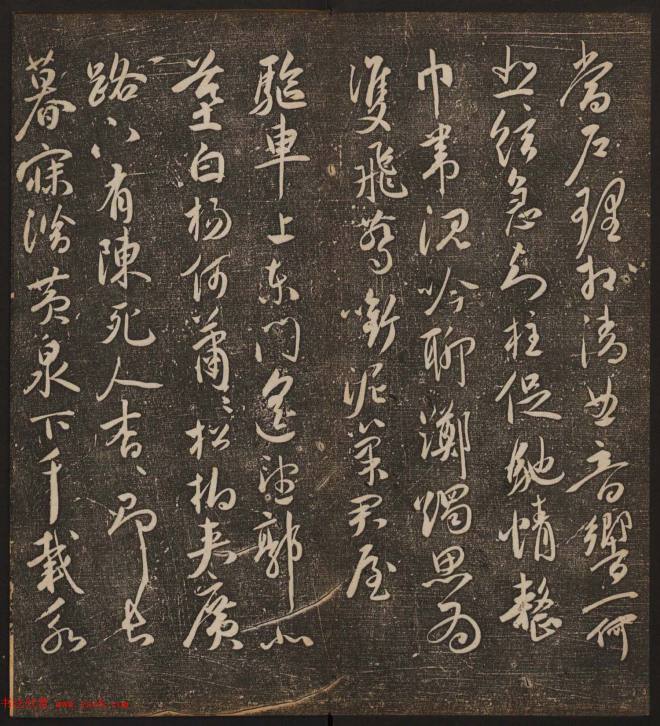 當户理清曲音響一何
悲絃急知柱促馳情整
巾帶沉吟聊躑躅思為
雙飛燕銜泥巢君屋
驅車上東門遙望郭北
墓白楊何蕭〻松柏夾廣
路下有陳死人杳〻即長
暮寐潛黃泉下千載永